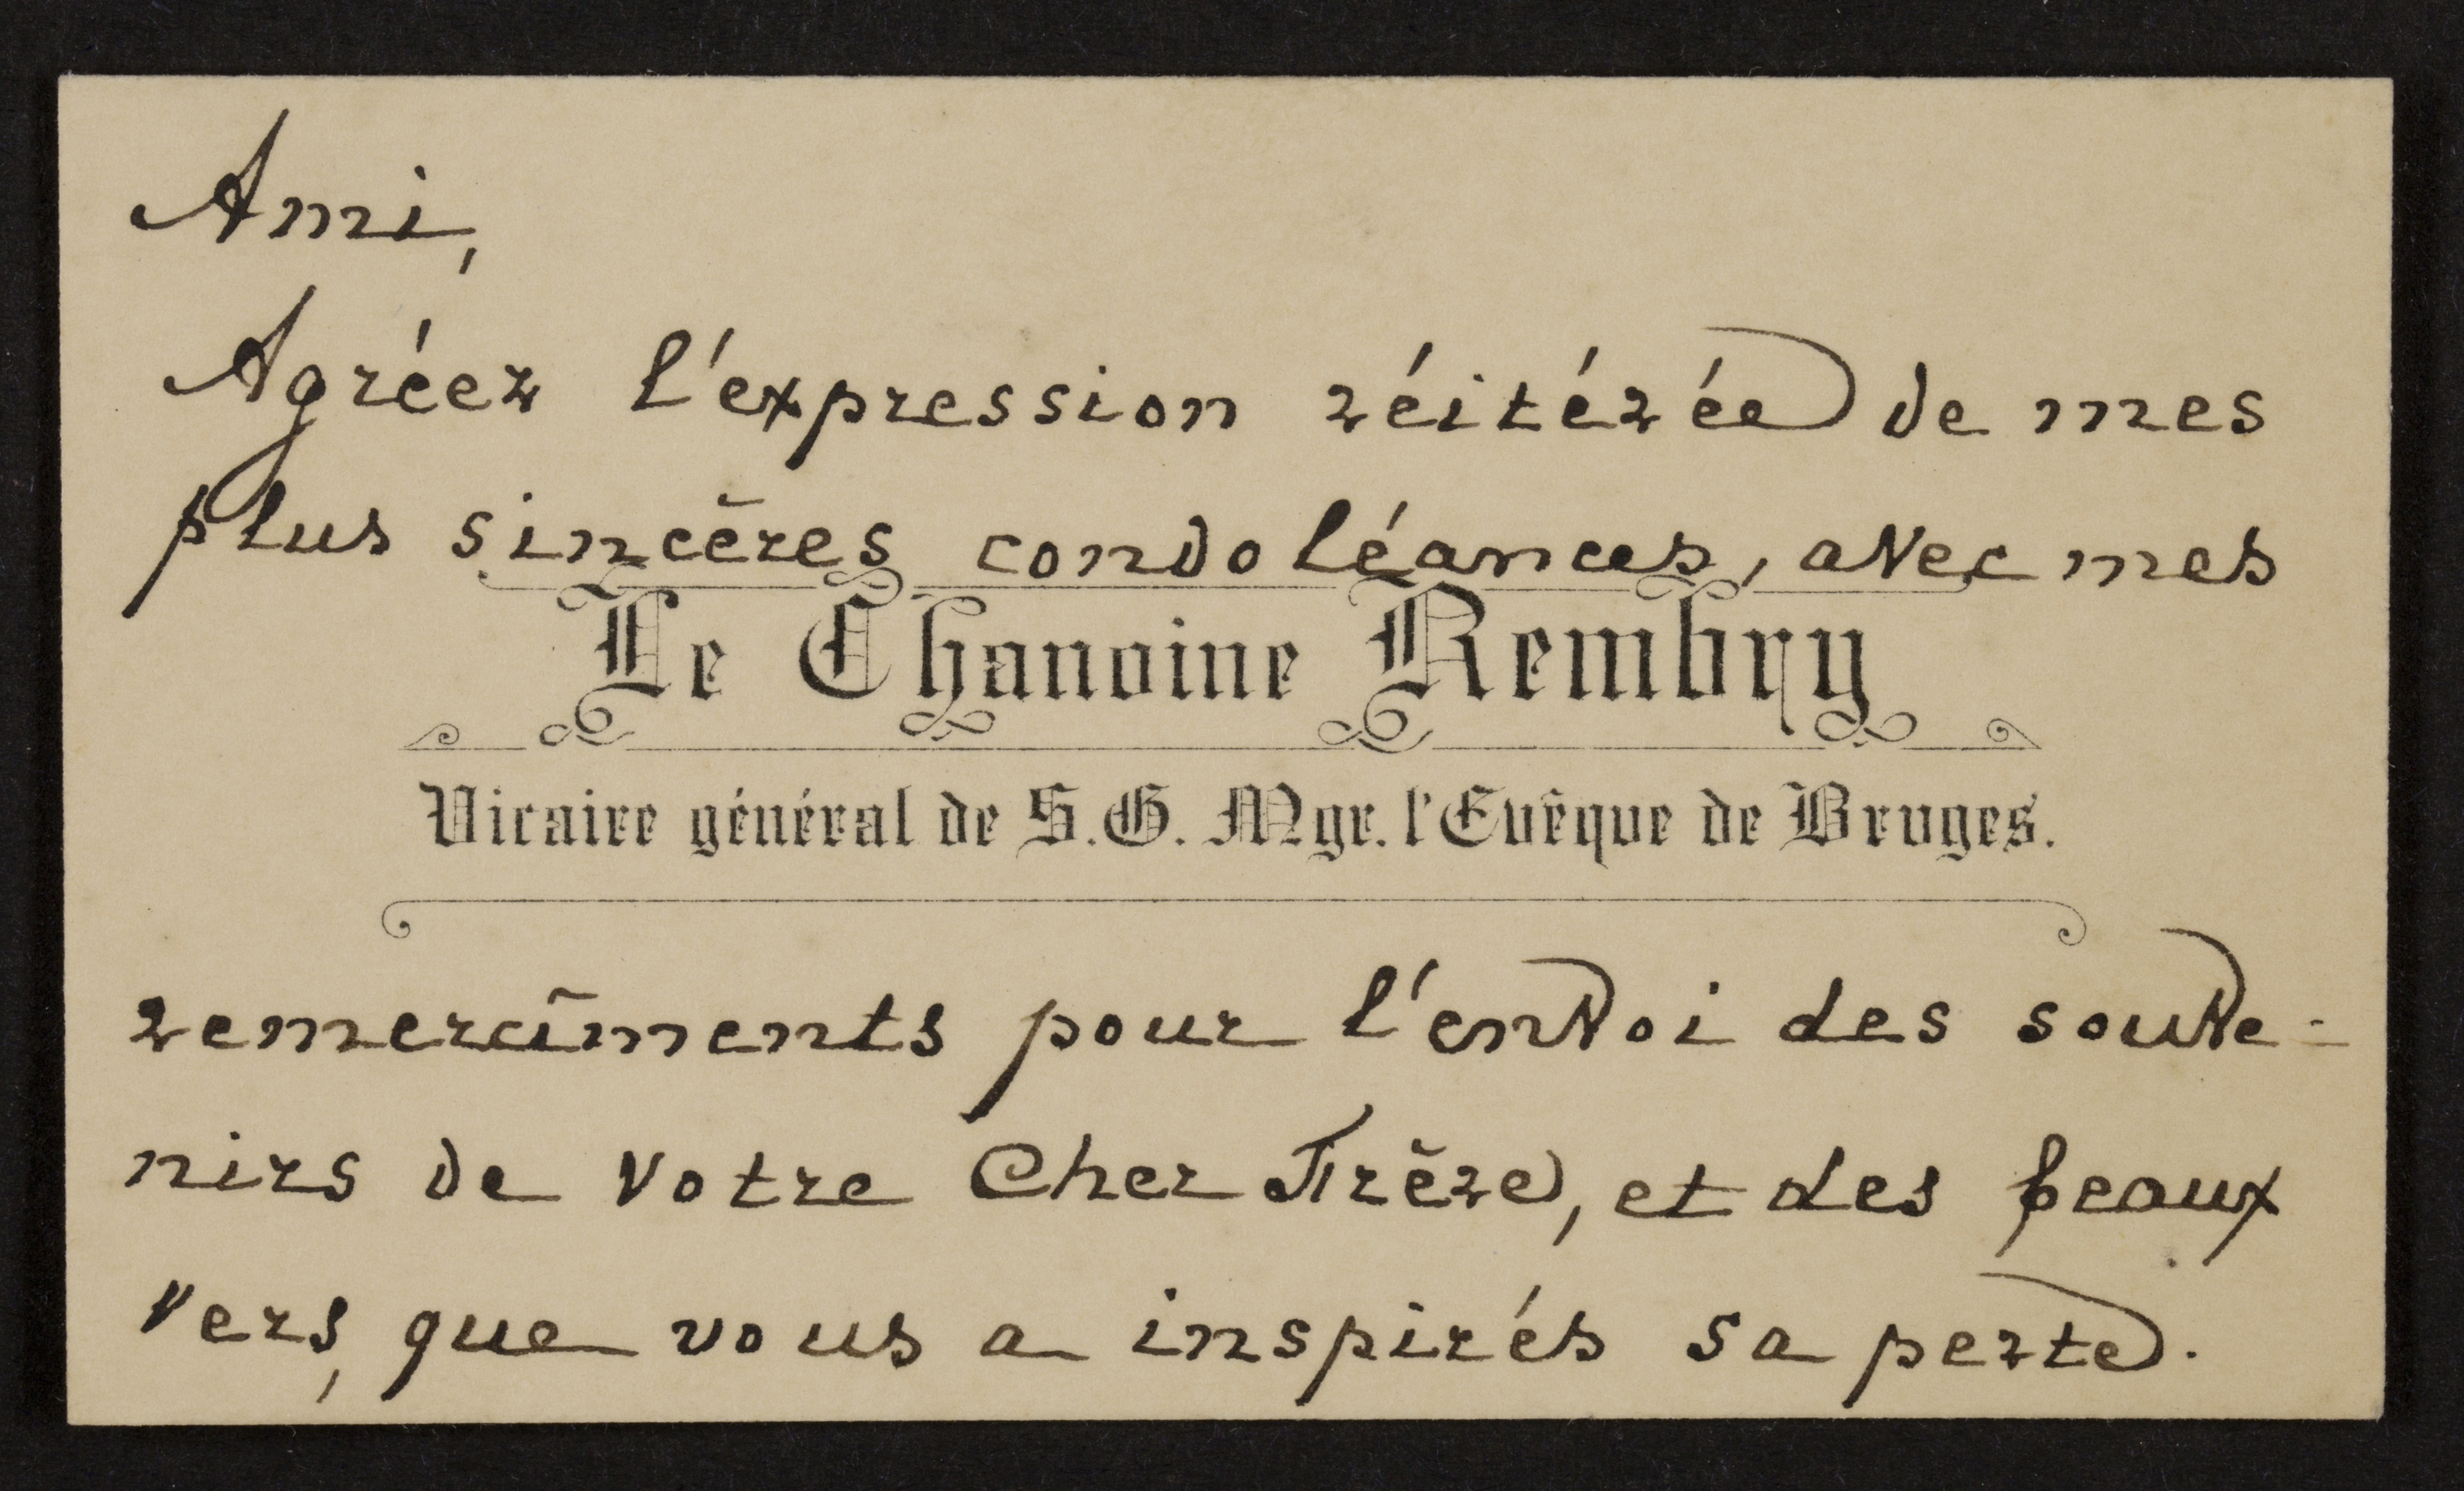 Ami,
Agréez l'expression réitérée de mes
plus sincères condoléances, avec mes
Le Chanoine Rembry
Vicaire général de S.G. Mgr. l'Evêque de Bruges.
remercîments pour l'envoi des souve=
nirs de votre Cher Frère, et des beaux
vers, que vous a inspirés sa perte.